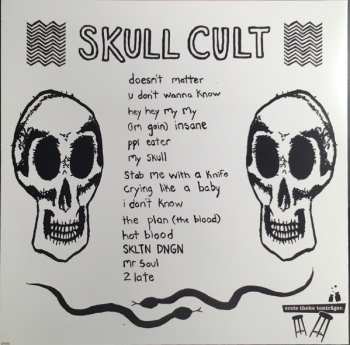 SKULL CULT
doesn't matter
u don't wanna know
hey hey my my
(Im goin) insane
ppl eater
my skull
stab me with a knife
crying like a baby
i don't know
the plan (the blood)
hot blood
SKLTN DNGN
mr soul
2 late
erste theke tonträger